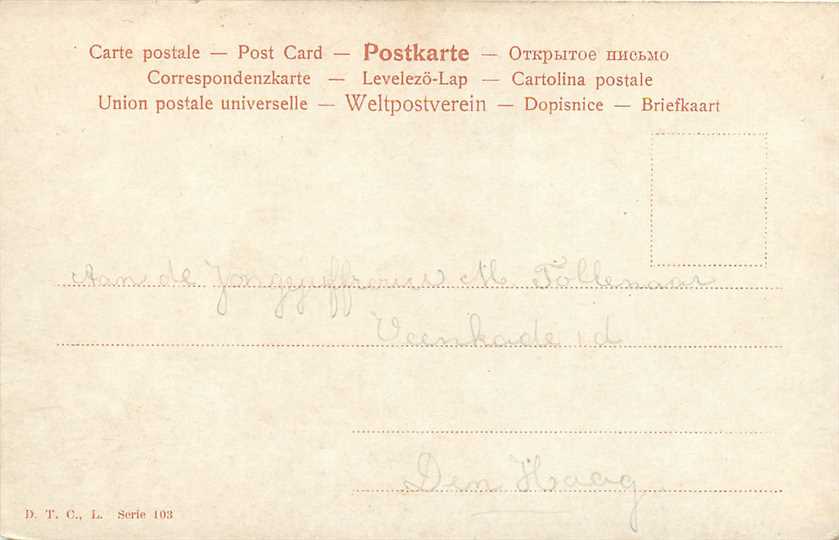 Carte postale — Post Card — Postkarte — Открытое письмо
Correspondenzkarte — Levelező-Lap — Cartolina postale
Union postale universelle — Weltpostverein — Dopisnice — Briefkaart
Aan de Jongejuffrouw M. Tollenaar
Veenkade 1d
Den Haag
D. T. C., L. Serie 103